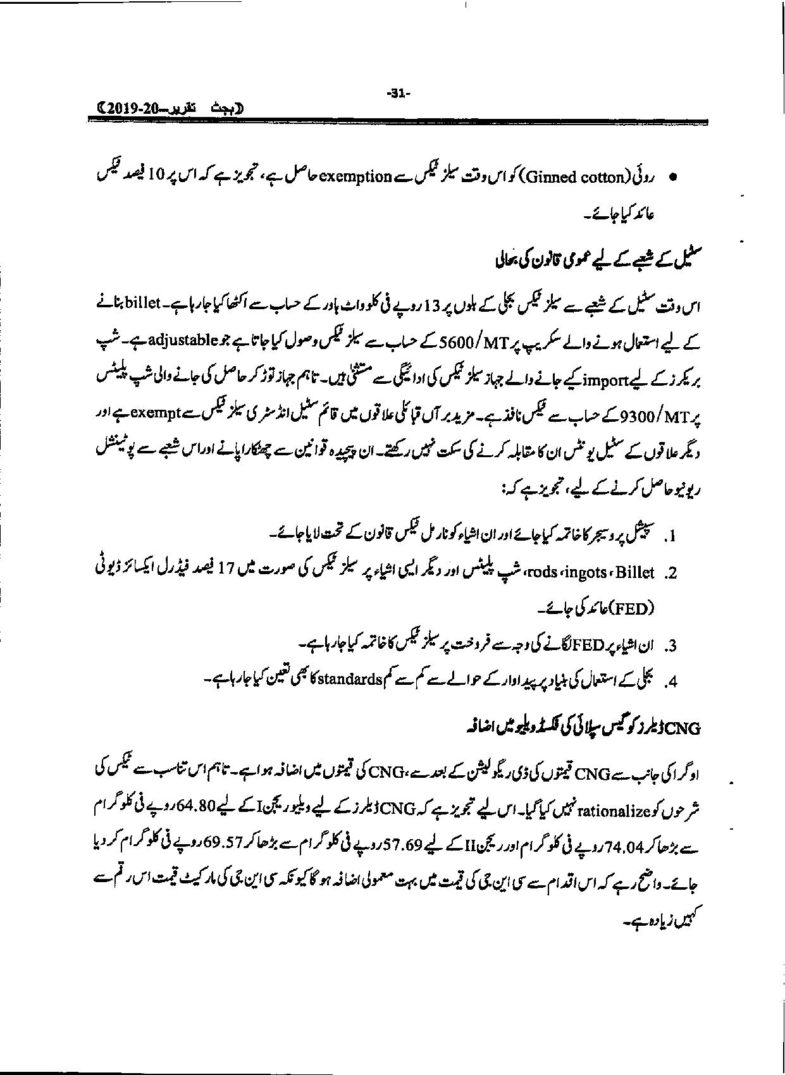 -31-
﴿بجٹ تقریر—20-2019﴾
• روئی(Ginned cotton) کو اس وقت سیلز ٹیکس سے exemption حاصل ہے، تجویز ہے کہ اس پر 10 فیصد ٹیکس
عائد کیا جائے۔
سٹیل کے شعبے کے لیے عمومی قانون کی بحالی
اس وقت سٹیل کے شعبے سے سیلز ٹیکس بجلی کے بلوں پر 13 روپے فی کلوواٹ پاور کے حساب سے اکٹھا کیا جا رہا ہے۔ billet بنانے
کے لیے استعمال ہونے والے سکریپ پر 5600/MT کے حساب سے سیلز ٹیکس وصول کیا جاتا ہے جو adjustable ہے۔ شپ
بریکرز کے لیے import کیے جانے والے جہاز سیلز ٹیکس کی ادائیگی سے مستثنیٰ ہیں۔ تاہم جہاز توڑ کر حاصل کی جانے والی شپ پلیٹس
پر 9300/MT کے حساب سے ٹیکس نافذ ہے۔ مزید برآں قبائلی علاقوں میں قائم سٹیل انڈسٹری سیلز ٹیکس سے exempt ہے اور
دیگر علاقوں کے سٹیل یونٹس ان کا مقابلہ کرنے کی سکت نہیں رکھتے۔ ان پیچیدہ قوانین سے چھٹکارا پانے اور اس شعبے سے پوٹینشل
ریونیو حاصل کرنے کے لیے، تجویز ہے کہ:
1. سپیشل پروسیجر کا خاتمہ کیا جائے اور ان اشیاء کو نارمل ٹیکس قانون کے تحت لایا جائے۔
2. Billet، ingots، rods، شپ پلیٹس اور دیگر ایسی اشیاء پر سیلز ٹیکس کی صورت میں 17 فیصد فیڈرل ایکسائز ڈیوٹی
(FED) عائد کی جائے۔
3. ان اشیاء پر FED لگانے کی وجہ سے فروخت پر سیلز ٹیکس کا خاتمہ کیا جا رہا ہے۔
4. بجلی کے استعمال کی بنیاد پر پیداوار کے حوالے سے کم سے کم standards کا بھی تعین کیا جا رہا ہے۔
CNG ڈیلرز کو گیس سپلائی کی فکسڈ ویلیو میں اضافہ
اوگرا کی جانب سے CNG قیمتوں کی ڈی ریگولیشن کے بعد سے، CNG کی قیمتوں میں اضافہ ہوا ہے۔ تاہم اس تناسب سے ٹیکس کی
شرحوں کو rationalize نہیں کیا گیا۔ اس لیے تجویز ہے کہ CNG ڈیلرز کے لیے ویلیو ریجن I کے لیے 64.80 روپے فی کلو گرام
سے بڑھا کر 74.04 روپے فی کلو گرام اور ریجن II کے لیے 57.69 روپے فی کلو گرام سے بڑھا کر 69.57 روپے فی کلو گرام کر دیا
جائے۔ واضح رہے کہ اس اقدام سے سی این جی کی قیمت میں بہت معمولی اضافہ ہو گا کیونکہ سی این جی کی مارکیٹ قیمت اس رقم سے
کہیں زیادہ ہے۔